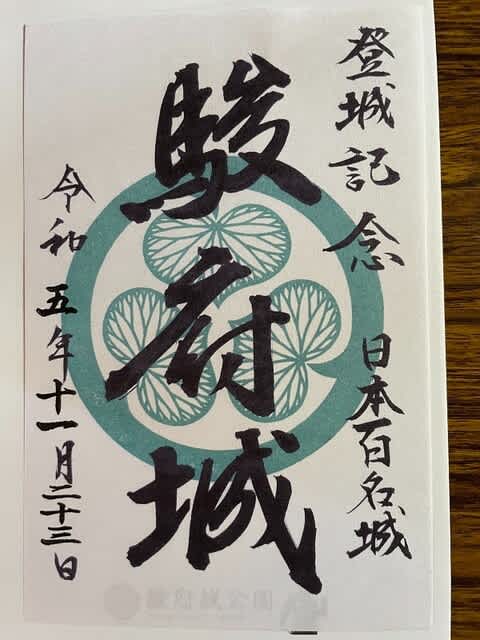 登城記念 日本百名城
駿府城
令和五年十一月二十三日
駿府城公園